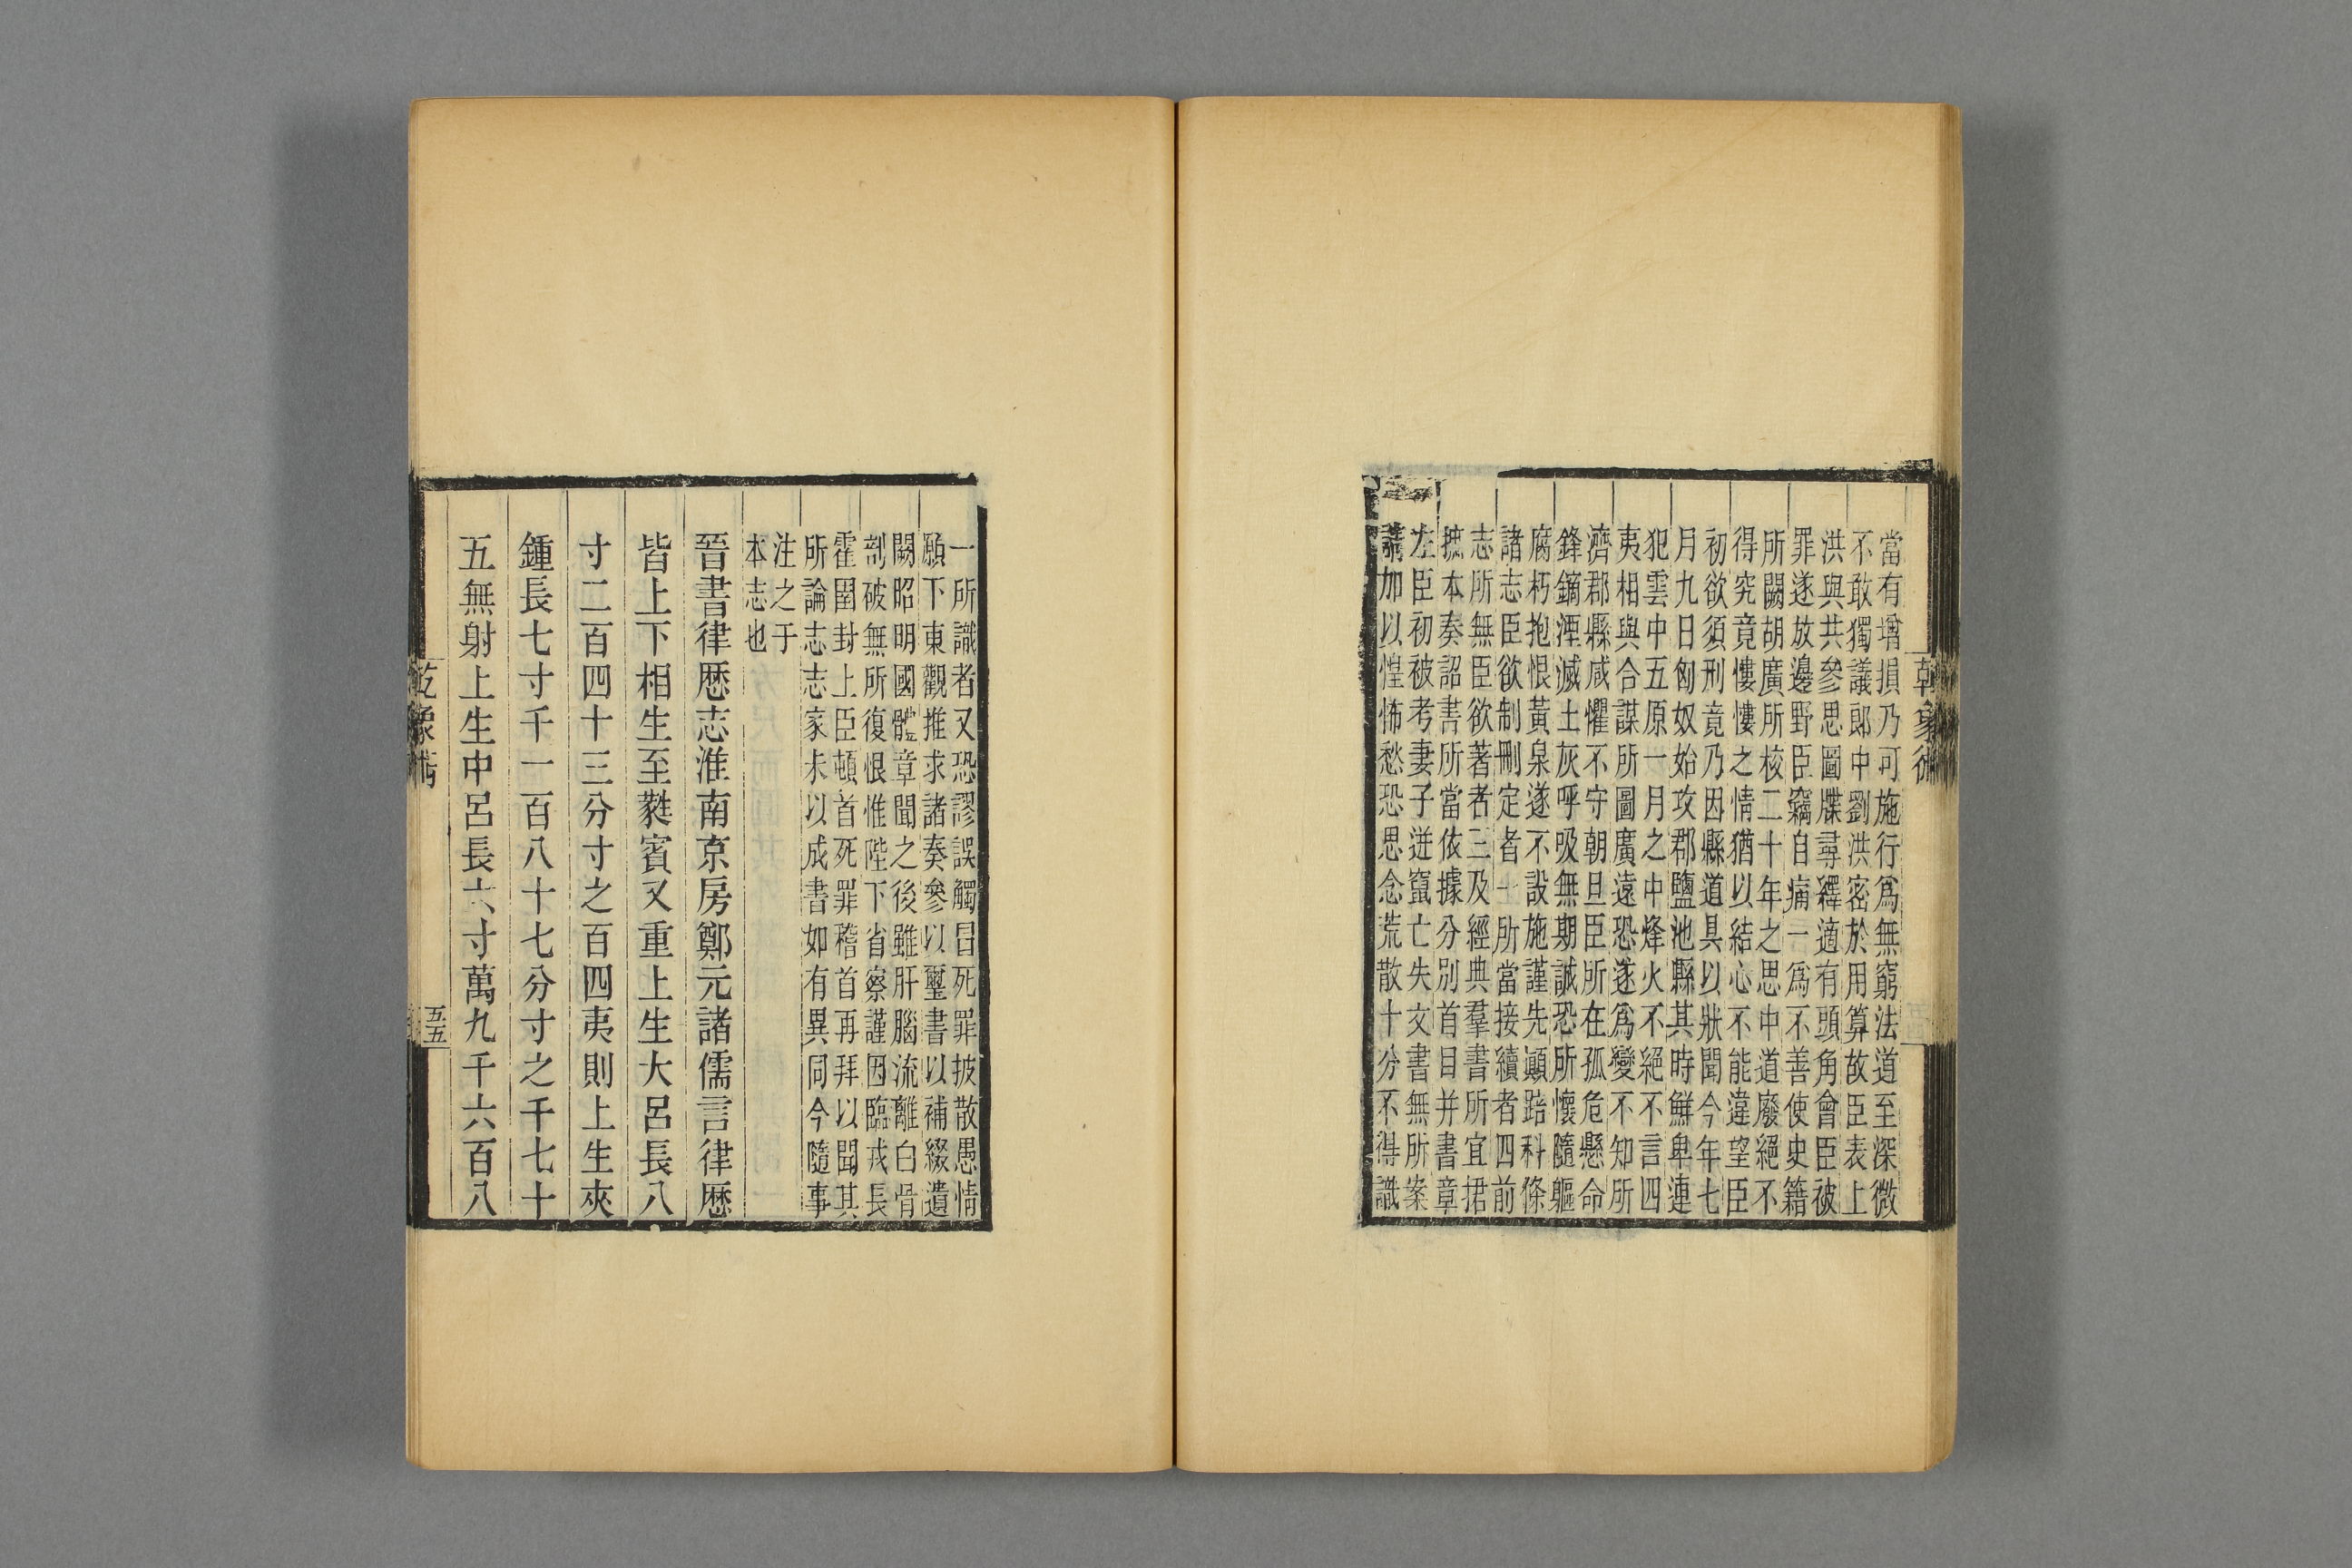 當有增損乃可施行爲無窮法道至深微
不敢獨議郎中劉洪密於用算故臣表上
洪與共參思圖牒尋釋適有頭角會臣被
罪遂放邊野臣竊自痛一爲不善使史籍
所闕胡廣所校二十年之思中道廢絕不
得究竟慺慺之情猶以結心不能違望臣
初欲須刑竟乃因縣道具以狀聞今年七
月九日匈奴始攻郡鹽池縣其時鮮卑連
犯雲中五原一月之中烽火不絕不言四
夷相與合謀所圖廣遠恐遂爲變不知所
濟郡縣咸懼不守朝旦臣所在孤危懸命
鋒鏑湮滅土灰呼吸無期誠恐所懷隨軀
腐朽抱恨黃泉遂不設施謹先顚踣科條
諸志臣欲制刪定者一所當接續者四前
志所無臣欲著者三及經典羣書所宜捃
摭本奏詔書所當依據分別首目并書章
左臣初被考妻子迸竄亡失文書無所案
請加以惶怖愁恐思念荒散十分不得識
乾象術
一所識者又恐謬誤觸冒死罪披散愚情
願下東觀推求諸奏參以璽書以補綴遺
闕昭明國體章聞之後雖肝腦流離白骨
剖破無所復恨惟陛下省察謹因臨戎長
霍圉封上臣頓首死罪稽首再拜以聞其
所論志志家未以成書如有異同今隨事
注之于
本志也
晉書律歷志淮南京房鄭元諸儒言律歷
皆上下相生至蕤賓又重上生大呂長八
寸二百四十三分寸之百四夷則上生夾
鍾長七寸千一百八十七分寸之千七十
五無射上生中呂長六寸萬九千六百八
乾象術
五五